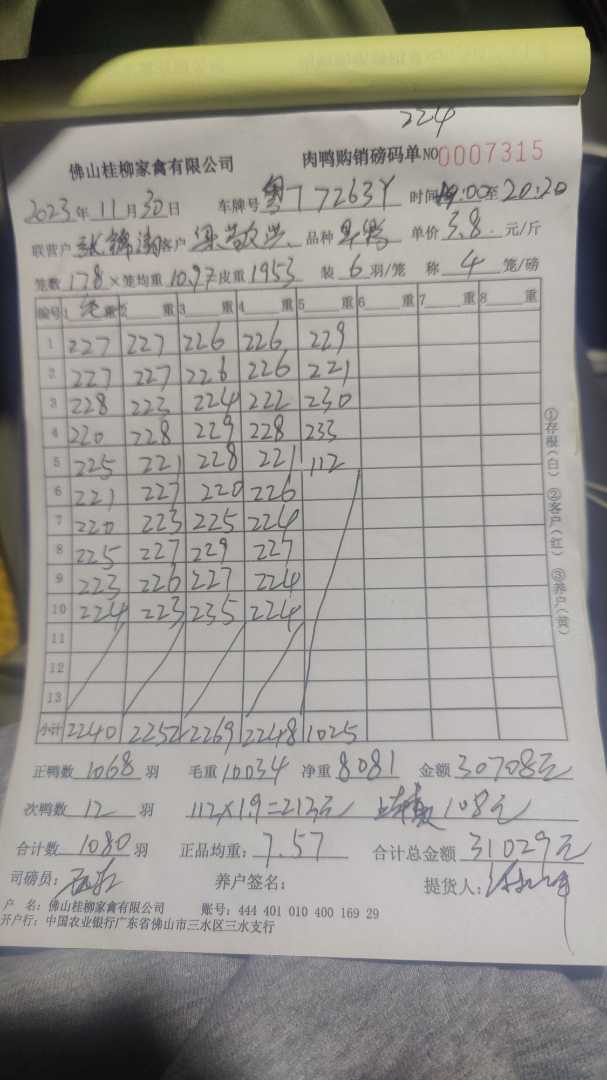 224
佛山桂柳家禽有限公司 肉鸭购销磅码单 NO 0007315
2023年11月30日 车牌号 粤T7263Y 时间 19:00至20:20
联营户 客户 品种 单价 3.8 元/斤
笼数 178 ×笼均重 10.97 皮重 1953 装 6 羽/笼 称 4 笼/磅
编号 1 重 2 重 3 重 4 重 5 重 6 重 7 重 8 重
1 227 227 226 226 229
2 227 227 226 226 221
3 228 223 224 222 230
4 220 228 229 228 233
5 225 221 228 221 112
6 221 227 220 226
7 220 223 225 224
8 225 227 229 227
9 223 226 227 224
10 224 223 235 224
11
12
13
小计 2240 2252 2269 2248 1025
①存根(白) ②客户(红) ③养户(黄)
正鸭数 1068 羽 毛重 10034 净重 8081 金额 30708元
次鸭数 12 羽 112×1.9=213元 108元
合计数 1080 羽 正品均重: 7.57 合计总金额 31029元
司磅员: 养户签名: 提货人:
户 名: 佛山桂柳家禽有限公司 账号: 444 401 010 400 169 29
开户行: 中国农业银行广东省佛山市三水区三水支行